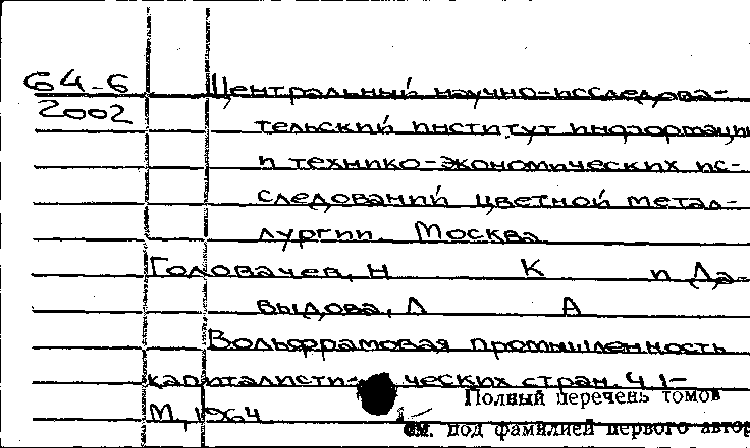 64-6
2002
Центральный научно-исследова-
тельский институт информации
и технико-экономических ис-
следований цветной метал-
лургии. Москва
Головачев, Н К и Да-
выдова, Л А
Вольфрамовая промышленность
капиталисти-ческих стран. Ч 1-
М, 1964
Полный перечень томов
см. под фамилией первого автор